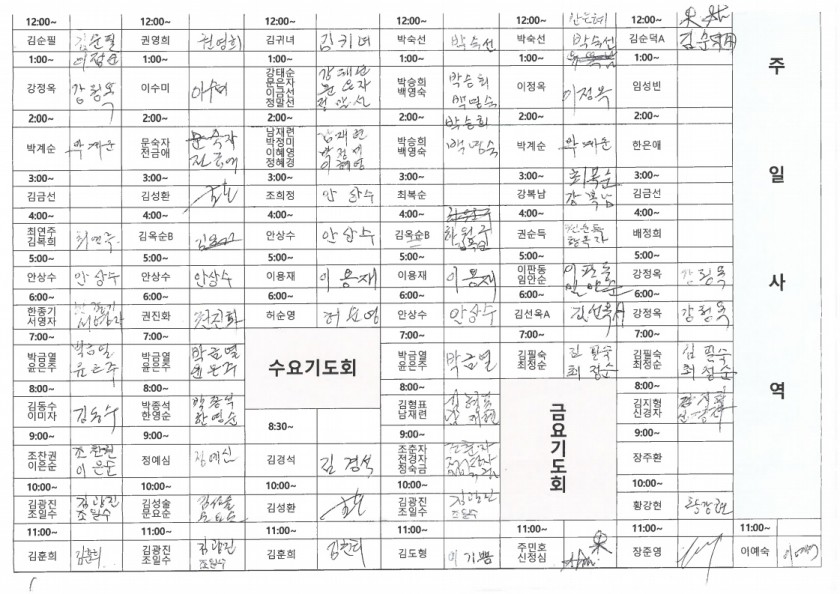 12:00~ 12:00~ 12:00~ 12:00~ 12:00~ 12:00~
김순필 김순필 권영희 권영희 김귀녀 김귀녀 박숙선 박숙선 박숙선 박숙선 김순덕A 김순덕A
1:00~ 1:00~ 1:00~ 1:00~ 1:00~ 1:00~
강정옥 강정옥 이수미 이수미 강태순 문은자 이금선 정말선 박승희 백영숙 박승희 백영숙 이정옥 이정옥 임성빈
2:00~ 2:00~ 2:00~ 2:00~ 2:00~ 2:00~
박계순 문숙자 전금애 문숙자 전금애 남재련 박정미 이혜영 정혜경 박승희 백영숙 박승희 백영숙 박계순 한은애
3:00~ 3:00~ 3:00~ 3:00~ 3:00~ 3:00~
김금선 김성환 조희정 안상수 최복순 강복남 최복순 강복남 김금선
4:00~ 4:00~ 4:00~ 4:00~ 4:00~ 4:00~
최연주 김복희 최연주 김옥순B 안상수 안상수 김옥순B 권순득 배정희
5:00~ 5:00~ 5:00~ 5:00~ 5:00~ 5:00~
안상수 안상수 안상수 안상수 이용재 이용재 이용재 이용재 이판동 임안순 이판동 임안순 강정옥 강정옥
6:00~ 6:00~ 6:00~ 6:00~ 6:00~ 6:00~
한종기 서영자 권진화 권진화 허순영 허순영 안상수 안상수 김선옥A 김선옥A 강정옥 강정옥
7:00~ 7:00~ 7:00~ 7:00~ 7:00~
박금열 윤은주 박금열 윤은주 박금열 윤은주 박금열 윤은주 수요기도회 박금열 박금열 윤은주 김필숙 최정순 김필숙 최정순 김필숙 최정순 김필숙 최정순
8:00~ 8:00~ 8:00~ 8:00~
김동수 이미자 김동수 박종석 한영순 박종석 한영순 김형표 남재련 김지형 신경자
9:00~ 9:00~ 8:30~ 9:00~ 금요기도회 9:00~
조찬권 이은순 조찬권 이은순 정예심 정예심 김경석 김경석 조춘자 전경자 정숙금 장주환
10:00~ 10:00~ 10:00~ 10:00~ 10:00~
김광진 조일수 김광진 조일수 김성술 문요순 김성술 문요순 김성환 김광진 조일수 김광진 조일수 황강현 황강현
11:00~ 11:00~ 11:00~ 11:00~ 11:00~ 11:00~ 11:00~
김훈희 김훈희 김광진 조일수 김광진 조일수 김훈희 김훈희 김도형 이기쁨 주민호 신정심 장준영 이예숙 이예숙
주일사역